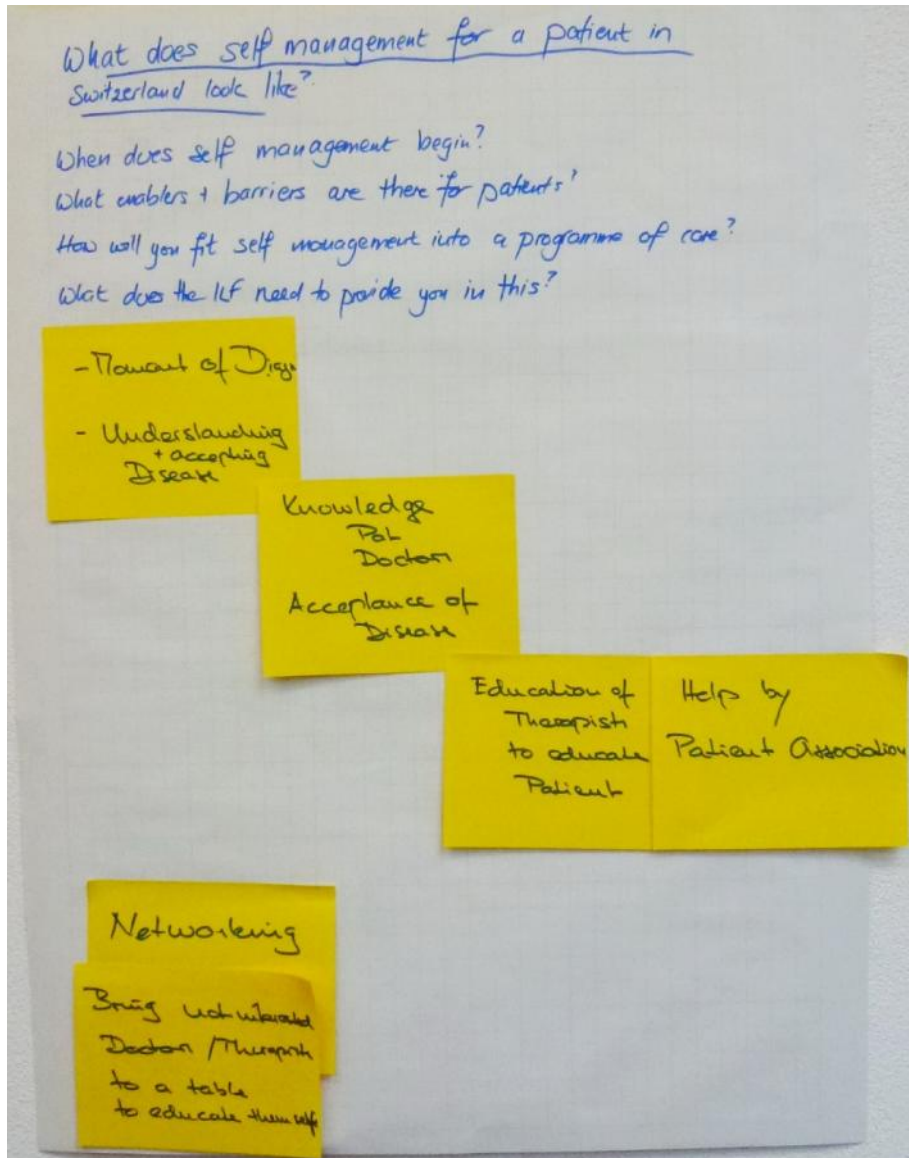 What does self management for a patient in
Switzerland look like?
When does self management begin?
What enablers + barriers are there for patients?
How will you fit self management into a programme of care?
What does the ILF need to provide you in this?
- Moment of Diagn
- Understanding
+ accepting
Disease
Knowledge
Pat
Doctors
Acceptance of
Disease
Education of
Therapists
to educate
Patient
Help by
Patient Association
Networking
Bring not interested
Doctors / Therapists
to a table
to educate themselfs